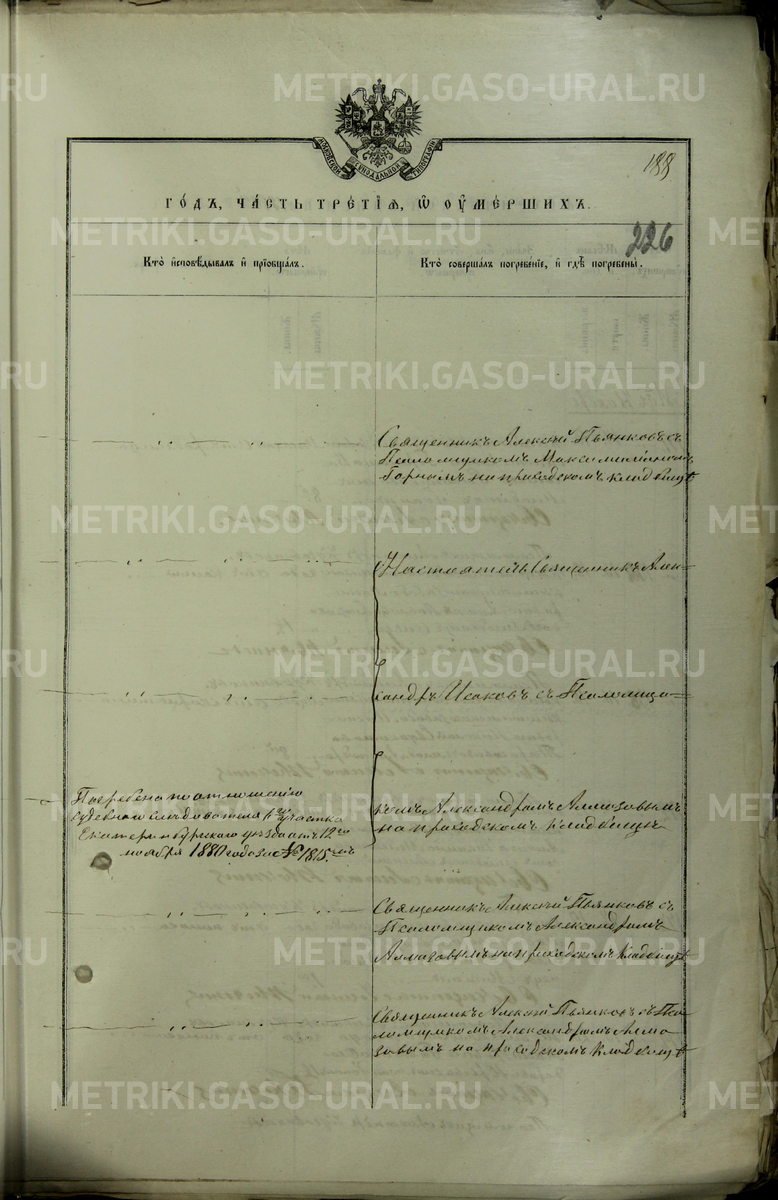 METRIKI.GASO-URAL.RU
МОСКОВСКОЙ СѴНОДАЛЬНОЙ ТИПОГРАФІИ
188
ГО́ДЪ, ЧА́СТЬ ТРЕ́ТІѦ, Ѡ҆ ОУ҆МЕ́РШИХЪ.
226
Кто̀ и҆сповѣ́дывалъ и҆ прїѡбща́лъ.
Кто̀ соверша́лъ погребе́нїе, и҆ гдѣ̀ погребены̀.
Священникъ Алексій Пьянковъ съ
Псаломщикомъ Максимиліаномъ
Горнымъ на приходскомъ кладбищѣ
Настоятель Священникъ Алек-
сандръ Исаковъ съ Псаломщи-
комъ Александромъ Алмазовымъ
на приходскомъ кладбищѣ
Погребена по отношенію
Судебнаго Слѣдователя 1го участка
Екатеринбургскаго уѣзда отъ 12го
ноября 1880 года за № 1815.мъ
Священникъ Алексій Пьянковъ съ
Псаломщикомъ Александромъ
Алмазовымъ на приходскомъ кладбищѣ
Священникъ Алексій Пьянковъ съ Пса-
ломщикомъ Александромъ Алма
зовымъ на приходскомъ кладбищѣ